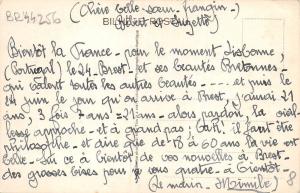 BR44256
(Chère belle-soeur, frangin -
Robert et Suzette)
Bientôt la France - pour le moment Lisbonne,
(Portugal) le 24 - Brest - et ses beautés Bretonnes -
qui valent toutes les autres beautés - et puis le
14 Juin, le jour qu'on arrive à Brest, j'aurai 21
ans; 3 fois 7 ans = 21 ans - alors pardon, la vieil-
lesse approche - et à grand pas; il faut être
philosophe - et dire que de 18 à 60 ans la vie est
belle. Sur ce à bientôt de vos nouvelles à Brest -
des grosses bises pour vous quatre - à bientôt
le marin - Mimile